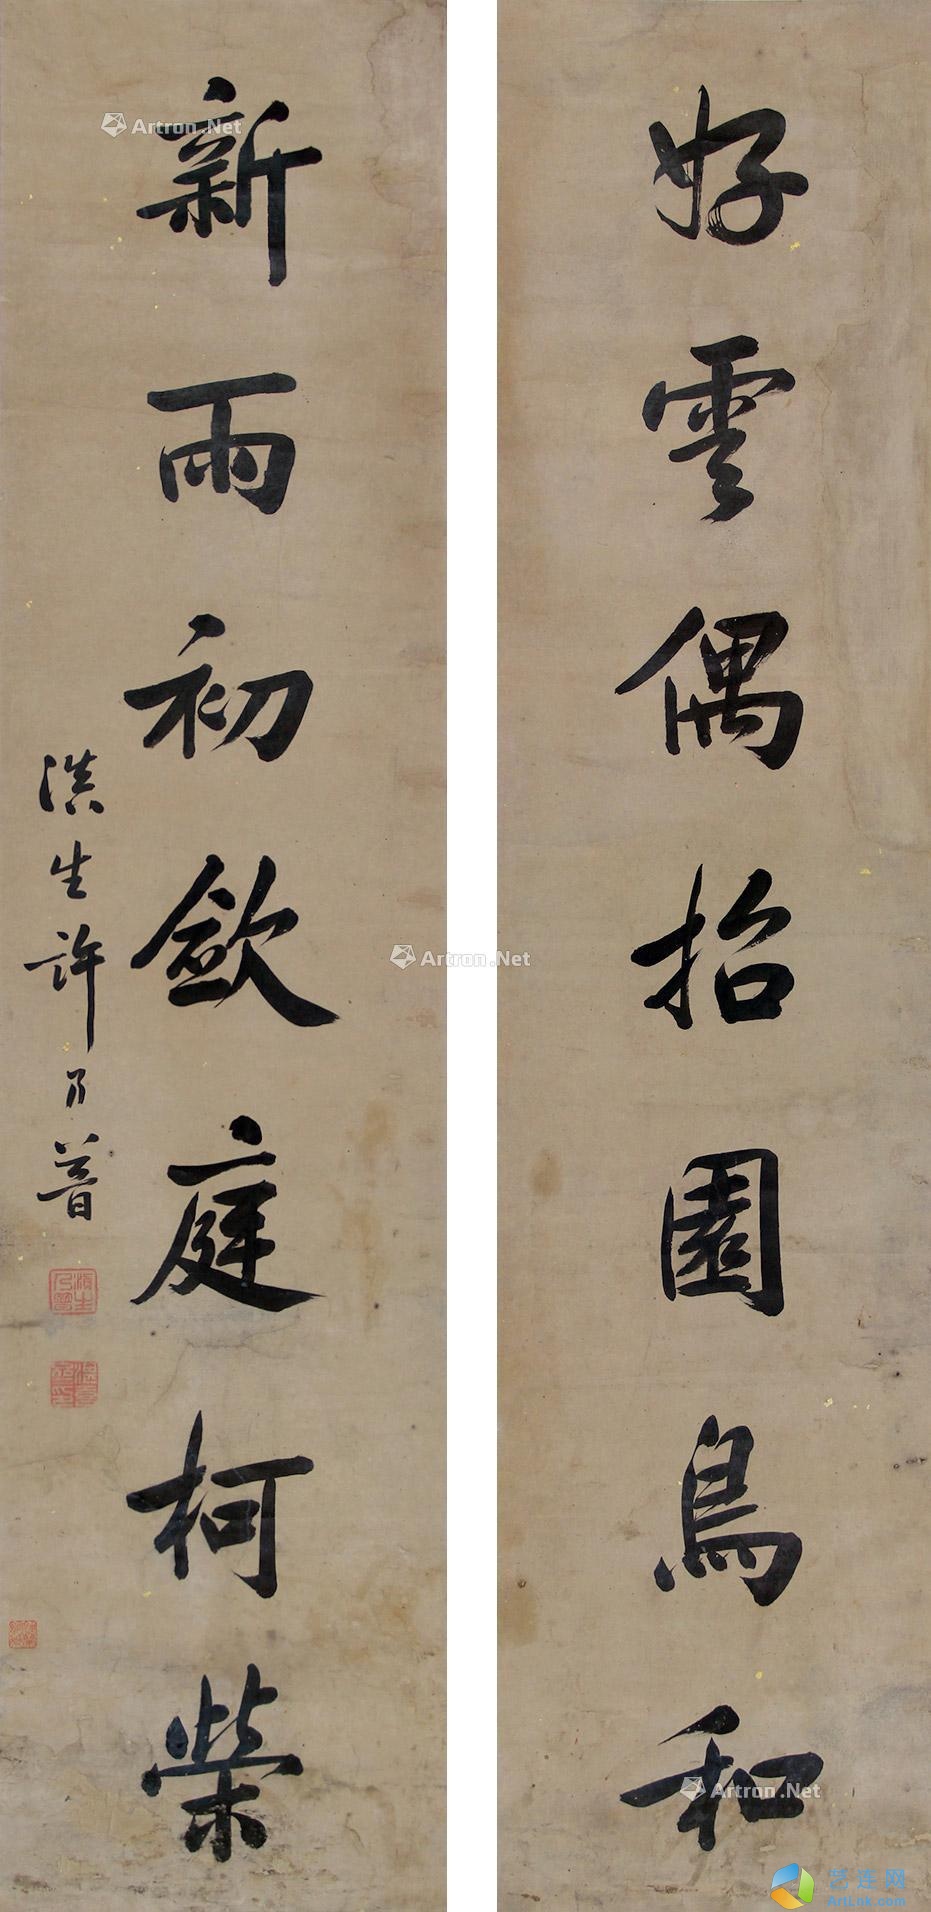 好雲偶招園鳥和
新雨初斂庭柯榮
滇生許乃普
Artron.Net
Artron.Net
Artron.Net
艺连网
ArtLok.com